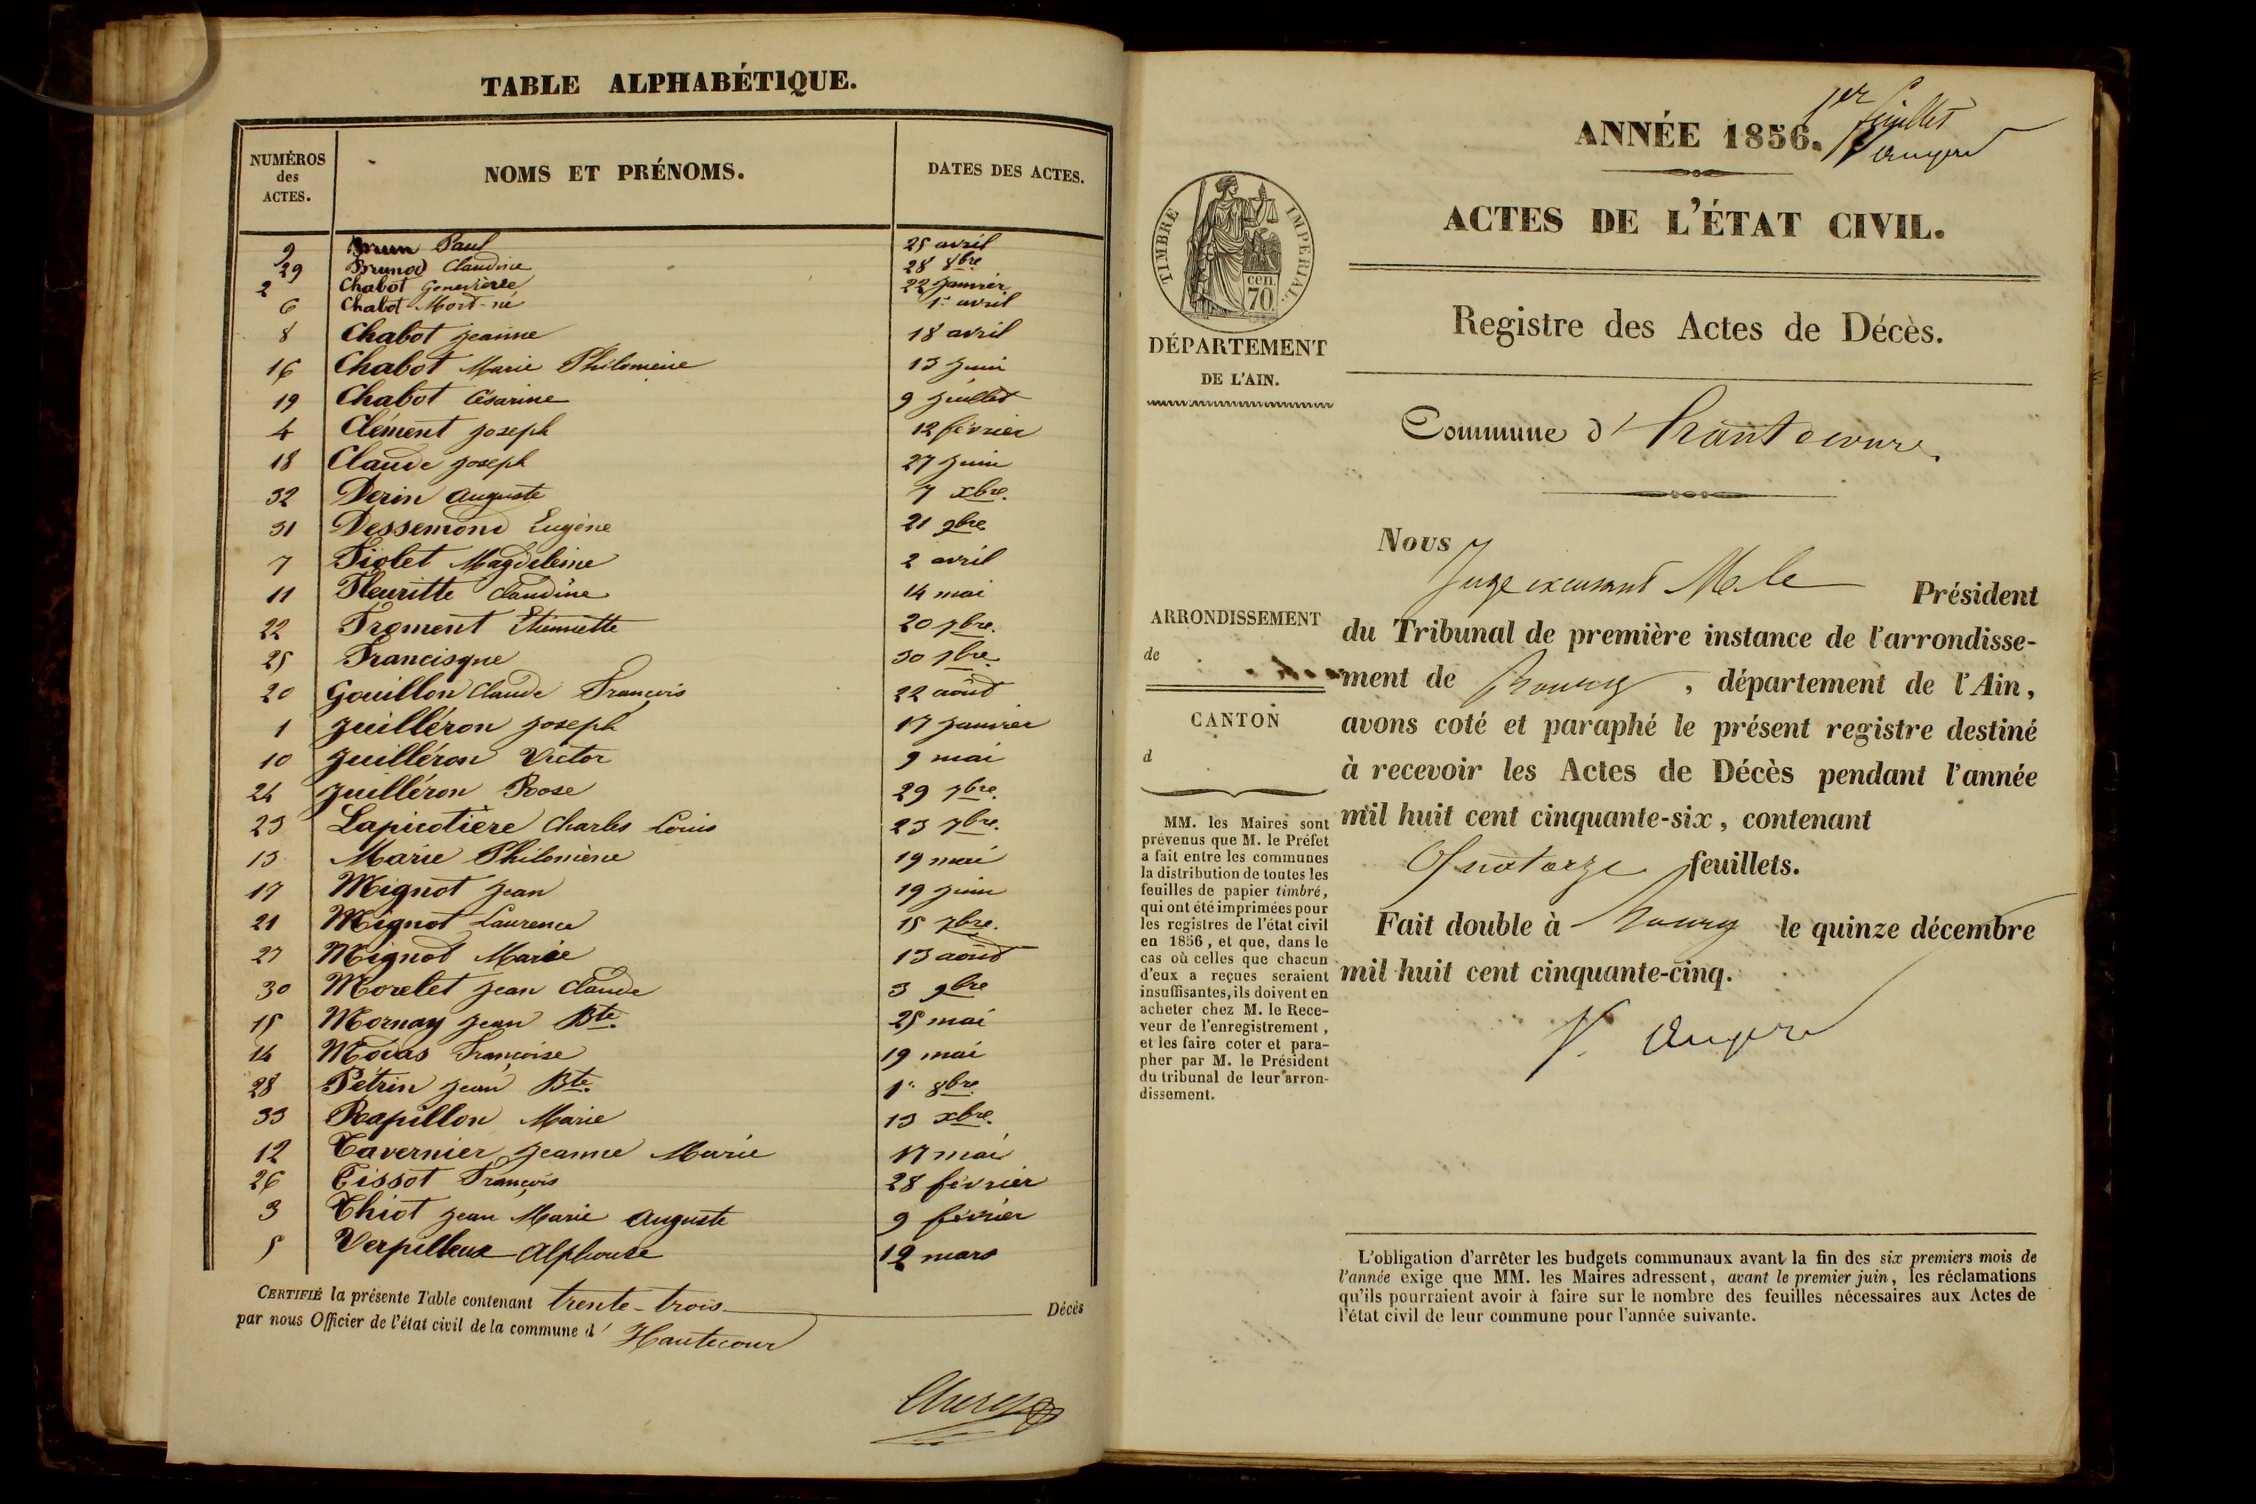 TABLE ALPHABÉTIQUE.
NUMÉROS des ACTES. NOMS ET PRÉNOMS. DATES DES ACTES.
9 Brun Paul 25 avril
29 Brunod Claudine 28 8bre
2 Chabot Geneviève 22 janvier
6 Chabot Mort-né 1er avril
8 Chabot jeanne 18 avril
16 Chabot Marie Philomène 13 juin
19 Chabot Césarine 9 juillet
4 Clément joseph 12 février
18 Claude joseph 27 juin
32 Derin auguste 7 xbre.
31 Dessemond Eugène 21 9bre
7 Fiolet Magdeleine 2 avril
11 Fleuritte Claudine 14 mai
22 Froment Etiennette 20 7bre.
25 Francisque 30 7bre
20 Gouillon Claude François 22 août
1 juilléron joseph 17 janvier
10 juilléron Victor 9 mai
24 juilléron Rose 29 7bre.
23 Lapicotière Charles Louis 23 7bre.
13 Marie Philomène 19 mai
17 Mignot jean 19 juin
21 Mignot Laurence 15 7bre.
27 Mignot Marie 13 août
30 Morelet jean Claude 3 9bre
15 Mornay jean Bte. 25 mai
14 Françoise 19 mai
28 Pétrin jean Bte. 1er 8bre
33 Rapillon Marie 13 xbre.
12 Tavernier jeanne Marie 17 mai
26 Tissot François 28 février
3 Thiot jean Marie auguste 9 février
5 Verpilleux alphonse 12 mars
CERTIFIÉ la présente Table contenant trente-trois Décès
par nous Officier de l'état civil de la commune d' Hautecour
1er feuillet
ANNÉE 1856.
ACTES DE L'ÉTAT CIVIL.
TIMBRE IMPERIAL.
cen.
70.
DÉPARTEMENT
DE L'AIN.
Registre des Actes de Décès.
Commune d' hautecour
ARRONDISSEMENT
de
CANTON
d
MM. les Maires sont
prévenus que M. le Préfet
a fait entre les communes
la distribution de toutes les
feuilles de papier timbré,
qui ont été imprimées pour
les registres de l'état civil
en 1856, et que, dans le
cas où celles que chacun
d'eux a reçues seraient
insuffisantes, ils doivent en
acheter chez M. le Rece-
veur de l'enregistrement,
et les faire coter et para-
pher par M. le Président
du tribunal de leur arron-
dissement.
Nous
Juge excusant M. le Président
du Tribunal de première instance de l'arrondisse-
ment de Bourg, département de l'Ain,
avons coté et paraphé le présent registre destiné
à recevoir les Actes de Décès pendant l'année
mil huit cent cinquante-six, contenant
Quatorze feuillets.
Fait double à Bourg le quinze décembre
mil huit cent cinquante-cinq.
L'obligation d'arrêter les budgets communaux avant la fin des six premiers mois de
l'année exige que MM. les Maires adressent, avant le premier juin, les réclamations
qu'ils pourraient avoir à faire sur le nombre des feuilles nécessaires aux Actes de
l'état civil de leur commune pour l'année suivante.